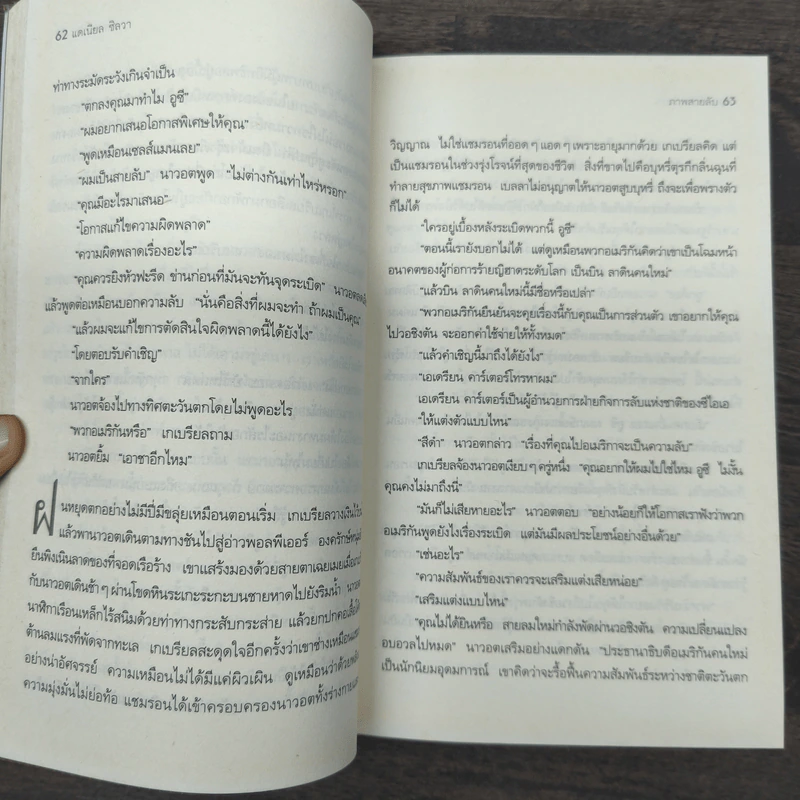 62 แดเนียล ซิลวา
ท่าทางระมัดระวังเกินจำเป็น
“ตกลงคุณมาทำไม อูซี”
“ผมอยากเสนอโอกาสพิเศษให้คุณ”
“พูดเหมือนเซลส์แมนเลย”
“ผมเป็นสายลับ” นาวอตพูด “ไม่ต่างกันเท่าไหร่หรอก”
“คุณมีอะไรมาเสนอ”
“โอกาสแก้ไขความผิดพลาด”
“ความผิดพลาดเรื่องอะไร”
“คุณควรยิงหัวฟะรีด ข่านก่อนที่มันจะทันจุดระเบิด” นาวอต
แล้วพูดต่อเหมือนบอกความลับ “นั่นคือสิ่งที่ผมจะทำ ถ้าผมเป็นคุณ”
“แล้วผมจะแก้ไขการตัดสินใจผิดพลาดนี้ได้ยังไง”
“โดยตอบรับคำเชิญ”
“จากใคร”
นาวอตจ้องไปทางทิศตะวันตกโดยไม่พูดอะไร
“พวกอเมริกันหรือ” เกเบรียลถาม
นาวอตยิ้ม “เอาชาอีกไหม”
ฝนหยุดตกอย่างไม่มีปี่มีขลุ่ยเหมือนตอนเริ่ม เกเบรียลวางเงินไว้
แล้วพานาวอตเดินตามทางชันไปสู่อ่าวพอลพีเออร์ องครักษ์
ยืนพิงเนินลาดของที่จอดเรือร้าง เขาแสร้งมองด้วยสายตาเฉยเมย
กับนาวอตเดินช้าๆ ผ่านโขดหินระเกะระกะบนชายหาดไปยังริมน้ำ
นาฬิกาเรือนเหล็กไร้สนิมด้วยท่าทางกระสับกระส่าย แล้วยกปกคอเสื้อ
ต้านลมแรงที่พัดจากทะเล เกเบรียลสะดุดใจอีกครั้งว่าเขาช่างเหมือน
อย่างน่าอัศจรรย์ ความเหมือนไม่ได้มีแค่ผิวเผิน ดูเหมือนว่าด้วย
ความมุ่งมั่นไม่ย่อท้อ แชมรอนได้เข้าครอบครองนาวอตทั้งร่างกาย
ภาพสายลับ 63
วิญญาณ ไม่ใช่แชมรอนที่ออดๆ แอดๆ เพราะอายุมากด้วย เกเบรียลคิด แต่
เป็นแชมรอนในช่วงรุ่งโรจน์ที่สุดของชีวิต สิ่งที่ขาดไปคือบุหรี่ตุรกีกลิ่นฉุนที่
ทำลายสุขภาพแชมรอน เบลลาไม่อนุญาตให้นาวอตสูบบุหรี่ ถึงจะเพื่อพรางตัว
ก็ไม่ได้
“ใครอยู่เบื้องหลังระเบิดพวกนี้ อูซี”
“ตอนนี้เรายังบอกไม่ได้ แต่ดูเหมือนพวกอเมริกันคิดว่าเขาเป็นโฉมหน้า
อนาคตของผู้ก่อการร้ายญิฮาดระดับโลก เป็นบิน ลาดินคนใหม่”
“แล้วบิน ลาดินคนใหม่นี้มีชื่อหรือเปล่า”
“พวกอเมริกันยืนยันจะคุยเรื่องนี้กับคุณเป็นการส่วนตัว เขาอยากให้คุณ
ไปวอชิงตัน จะออกค่าใช้จ่ายให้ทั้งหมด”
“แล้วคำเชิญนี้มาถึงได้ยังไง”
“เอเดรียน คาร์เตอร์โทรหาผม”
เอเดรียน คาร์เตอร์เป็นผู้อำนวยการฝ่ายกิจการลับแห่งชาติของซีไอเอ
“ให้แต่งตัวแบบไหน”
“สีดำ” นาวอตกล่าว “เรื่องที่คุณไปอเมริกาจะเป็นความลับ”
เกเบรียลจ้องนาวอตเงียบๆ ครู่หนึ่ง “คุณอยากให้ผมไปใช่ไหม อูซี ไม่งั้น
คุณคงไม่มาถึงนี่”
“มันก็ไม่เสียหายอะไร” นาวอตตอบ “อย่างน้อยก็ให้โอกาสเราฟังว่าพวก
อเมริกันพูดยังไงเรื่องระเบิด แต่มันมีผลประโยชน์อย่างอื่นด้วย”
“เช่นอะไร”
“ความสัมพันธ์ของเราควรจะเสริมแต่งเสียหน่อย”
“เสริมแต่งแบบไหน”
“คุณไม่ได้ยินหรือ สายลมใหม่กำลังพัดผ่านวอชิงตัน ความเปลี่ยนแปลง
อบอวลไปหมด” นาวอตเสริมอย่างแดกดัน “ประธานาธิบดีอเมริกันคนใหม่
เป็นนักนิยมอุดมการณ์ เขาคิดว่าจะรื้อฟื้นความสัมพันธ์ระหว่างชาติตะวันตก